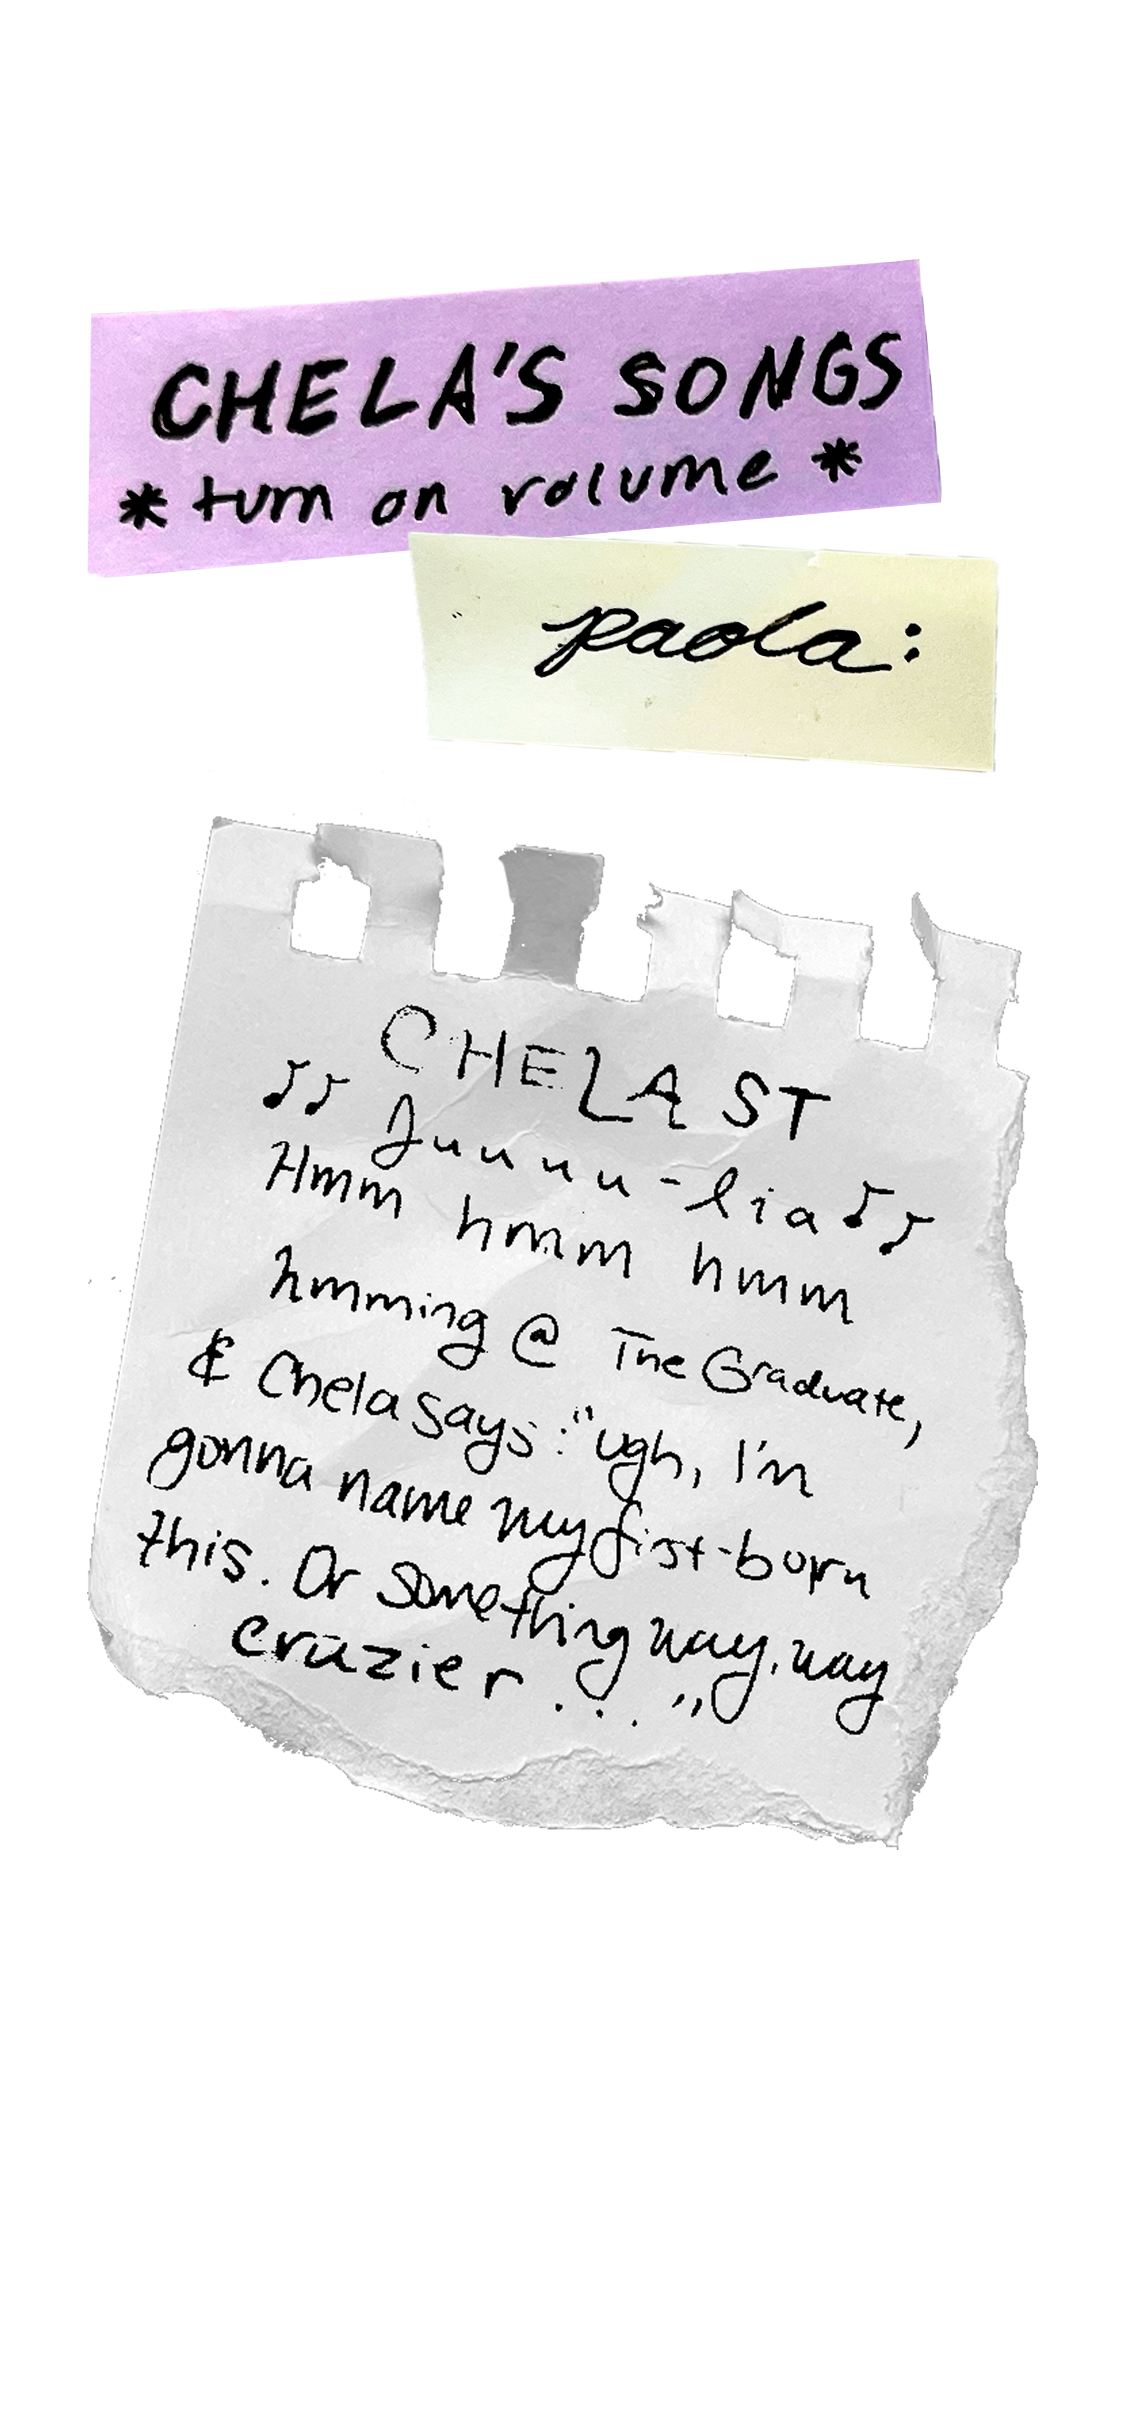 CHELA'S SONGS
* turn on volume *
paola:
CHELA ST
♪♪ Juuuu-lia ♪♪
Hmm hmm hmm
hmming @ The Graduate,
& Chela says: "ugh, I'm
gonna name my first-born
this. Or something way, way
crazier..."